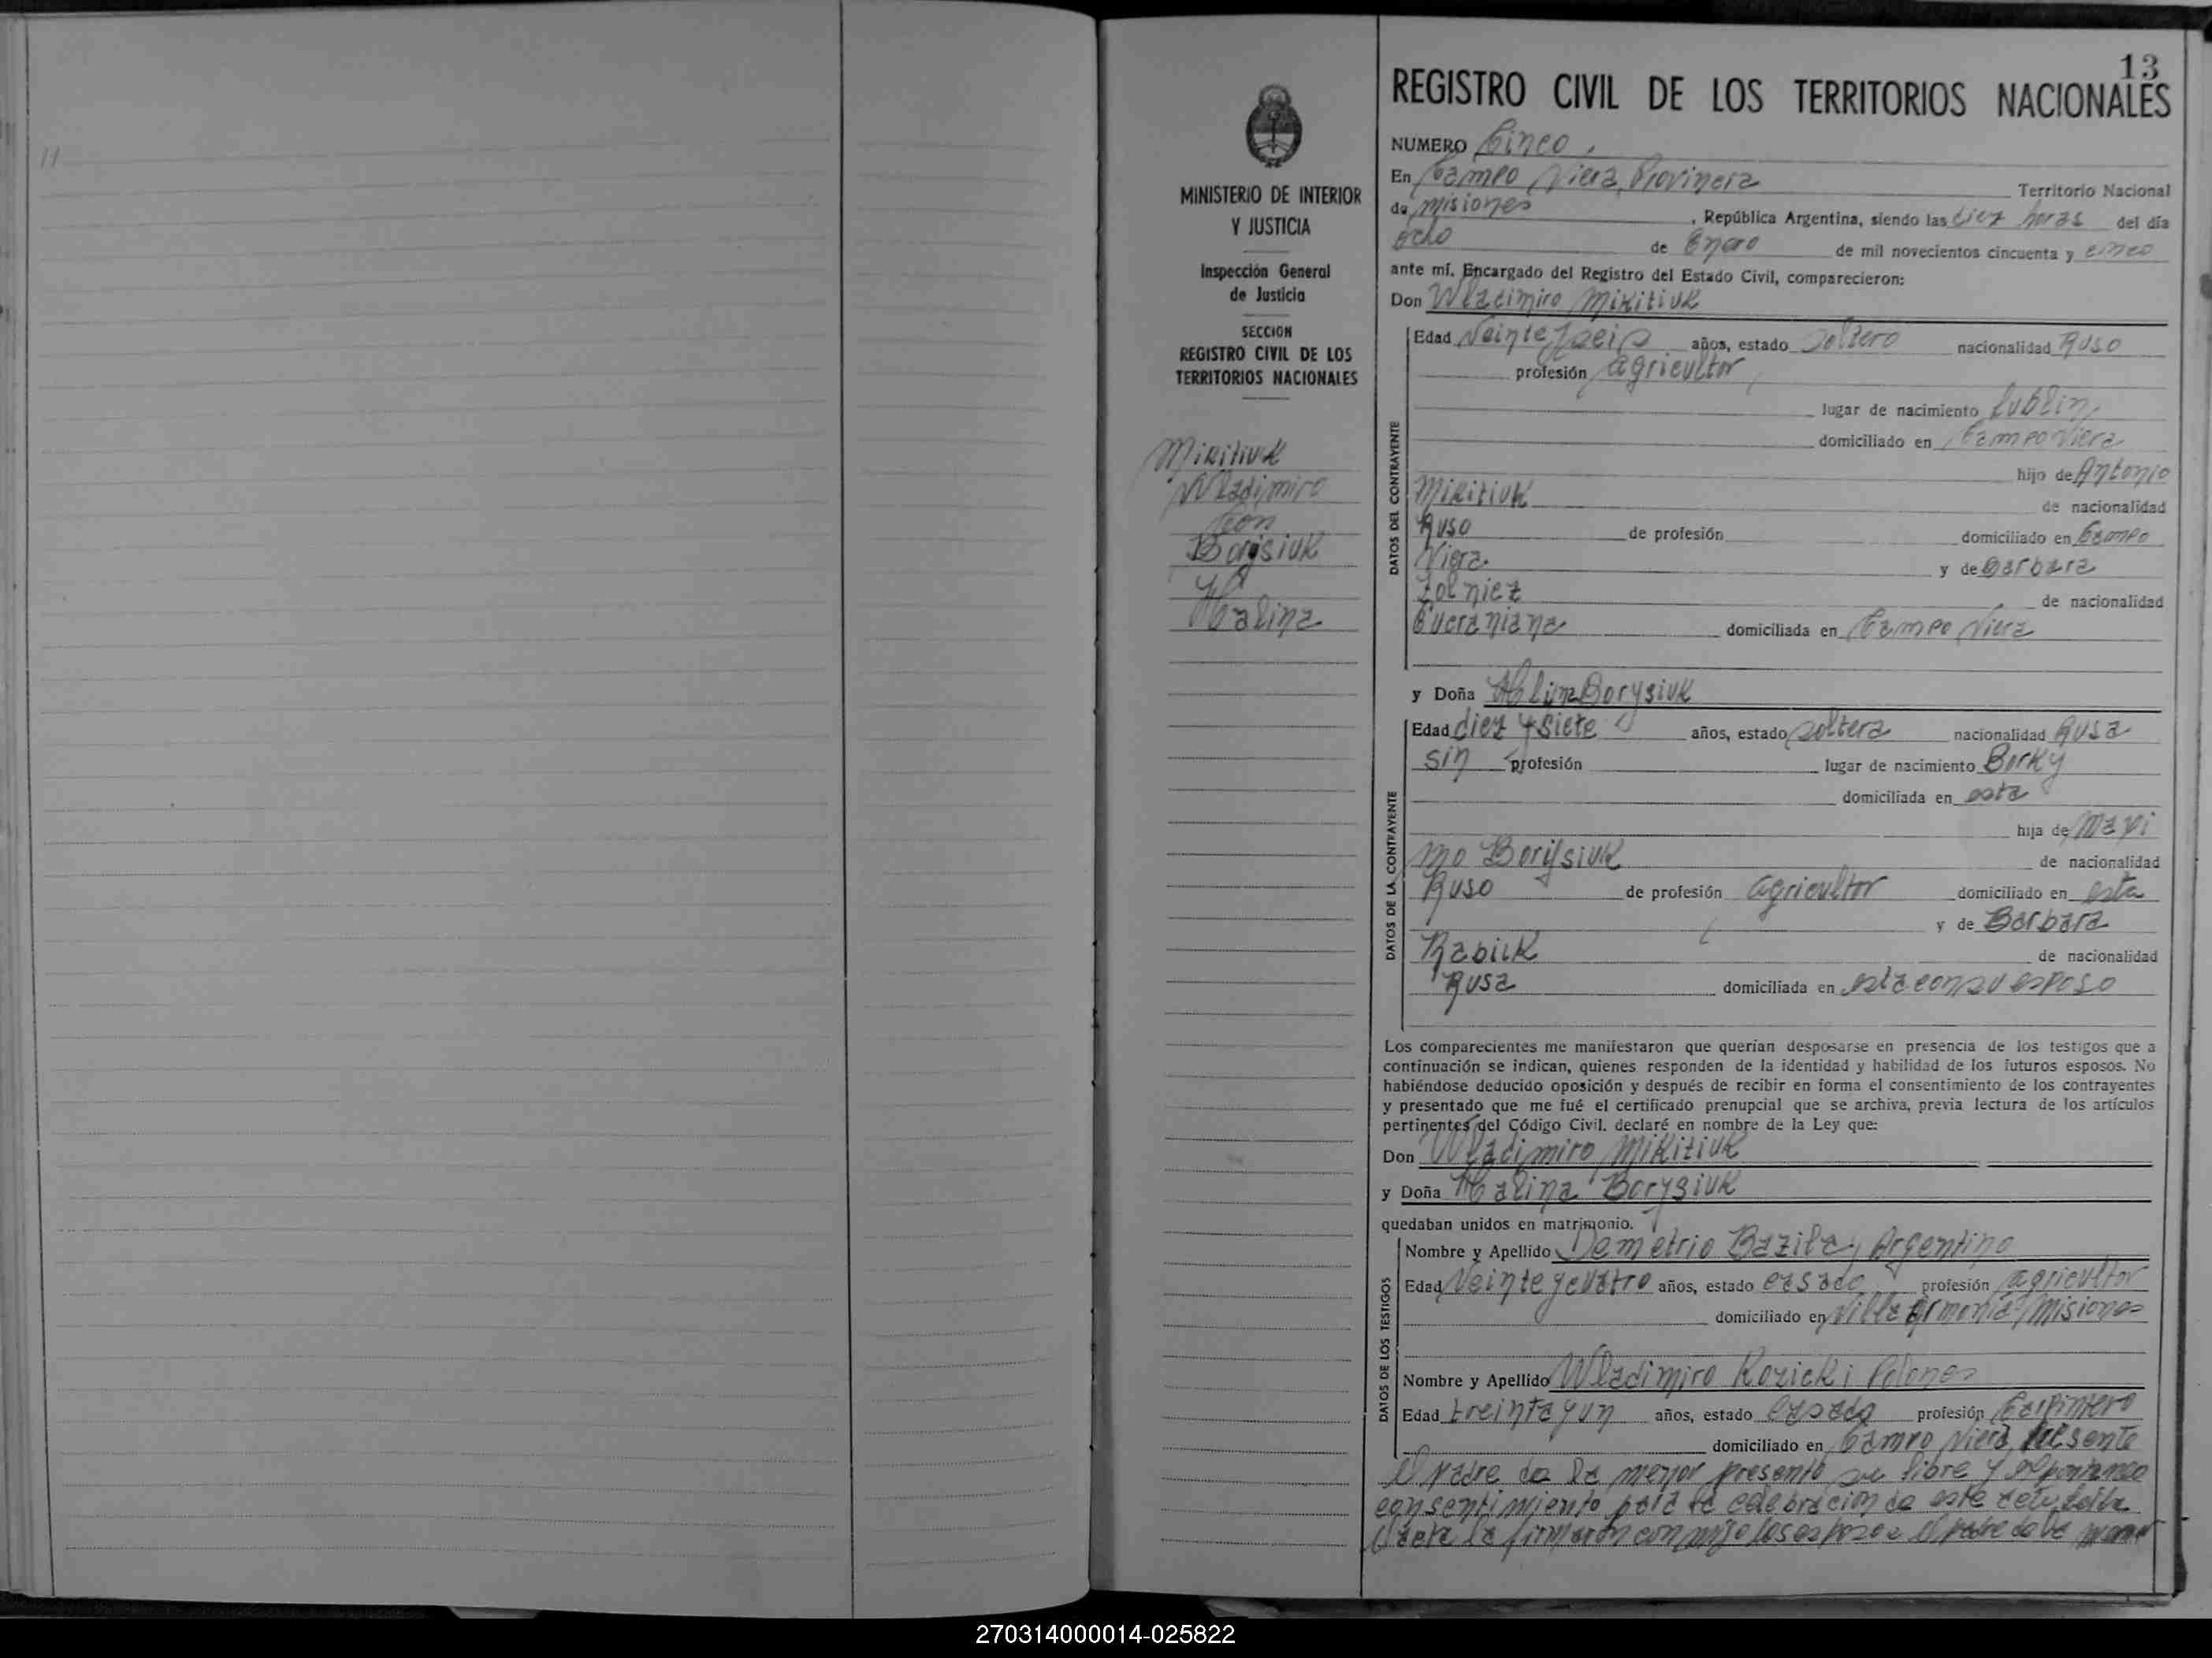 11
13
REGISTRO CIVIL DE LOS TERRITORIOS NACIONALES
MINISTERIO DE INTERIOR
Y JUSTICIA
Inspección General
de Justicia
SECCION
REGISTRO CIVIL DE LOS
TERRITORIOS NACIONALES
Mikitiuk
Wladimiro
Con
Borysiuk
Halina
NUMERO Cinco
En Campo Viera, Provincia Territorio Nacional
de Misiones, República Argentina, siendo las diez horas del día
ocho de Enero de mil novecientos cincuenta y cinco
ante mí, Encargado del Registro del Estado Civil, comparecieron:
Don Wladimiro Mikitiuk
DATOS DEL CONTRAYENTE
Edad Veinte y seis años, estado soltero nacionalidad Ruso
profesión agricultor
lugar de nacimiento Lublin
domiciliado en Campo Viera
hijo de Antonio
Mikitiuk de nacionalidad
Ruso de profesión domiciliado en Campo
Viera y de Barbara
Zolniez de nacionalidad
Eucraniana domiciliada en Campo Viera
y Doña Halina Borysiuk
DATOS DE LA CONTRAYENTE
Edad diez y siete años, estado soltera nacionalidad Rusa
sin profesión lugar de nacimiento Borky
domiciliada en esta
hija de Maxi
mo Borysiuk de nacionalidad
Ruso de profesión agricultor domiciliado en esta
y de Barbara
Rabiik de nacionalidad
Rusa domiciliada en esta con su esposo
Los comparecientes me manifestaron que querían desposarse en presencia de los testigos que a
continuación se indican, quienes responden de la identidad y habilidad de los futuros esposos. No
habiéndose deducido oposición y después de recibir en forma el consentimiento de los contrayentes
y presentado que me fué el certificado prenupcial que se archiva, previa lectura de los artículos
pertinentes del Código Civil, declaré en nombre de la Ley que:
Don Wladimiro Mikitiuk
y Doña Halina Borysiuk
quedaban unidos en matrimonio.
DATOS DE LOS TESTIGOS
Nombre y Apellido Demetrio Bazila, Argentino
Edad Veinte y cuatro años, estado casado profesión agricultor
domiciliado en Villa Armonia, Misiones
Nombre y Apellido Wladimiro Kozicki Polones
Edad treinta y un años, estado casado profesión Carpintero
domiciliado en Campo Viera, presente
el padre de la menor presento su libre y espontaneo
consentimiento para la celebracion de este acto
acta la firmaron conmigo los esposos el padre de la menor
270314000014-025822